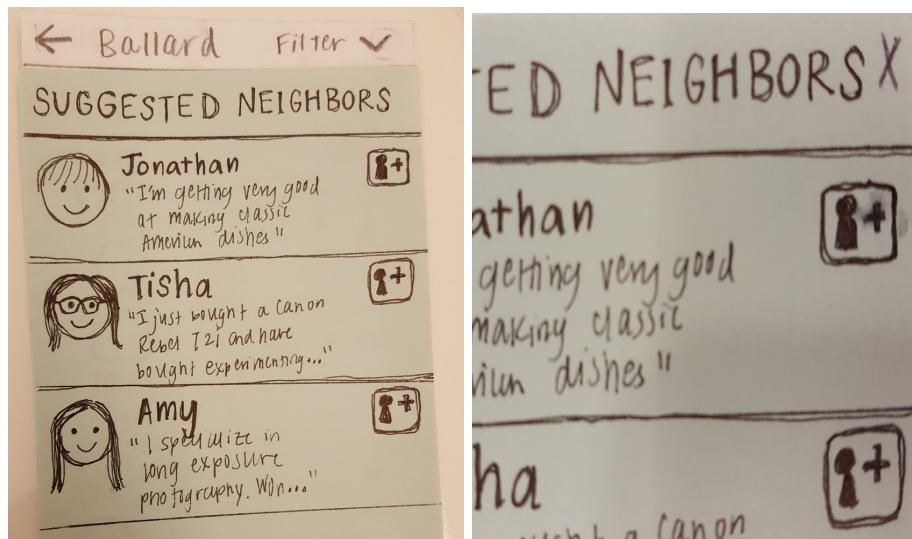 ← Ballard Filter ✓
SUGGESTED NEIGHBORS
Jonathan
"I'm getting very good
at making classic
American dishes"
Tisha
"I just bought a Canon
Rebel T2i and have
bought experimenting..."
Amy
"I specialize in
long exposure
photography. Won..."
TED NEIGHBORS X
athan
getting very good
making classic
dishes"
ha
bought a Canon